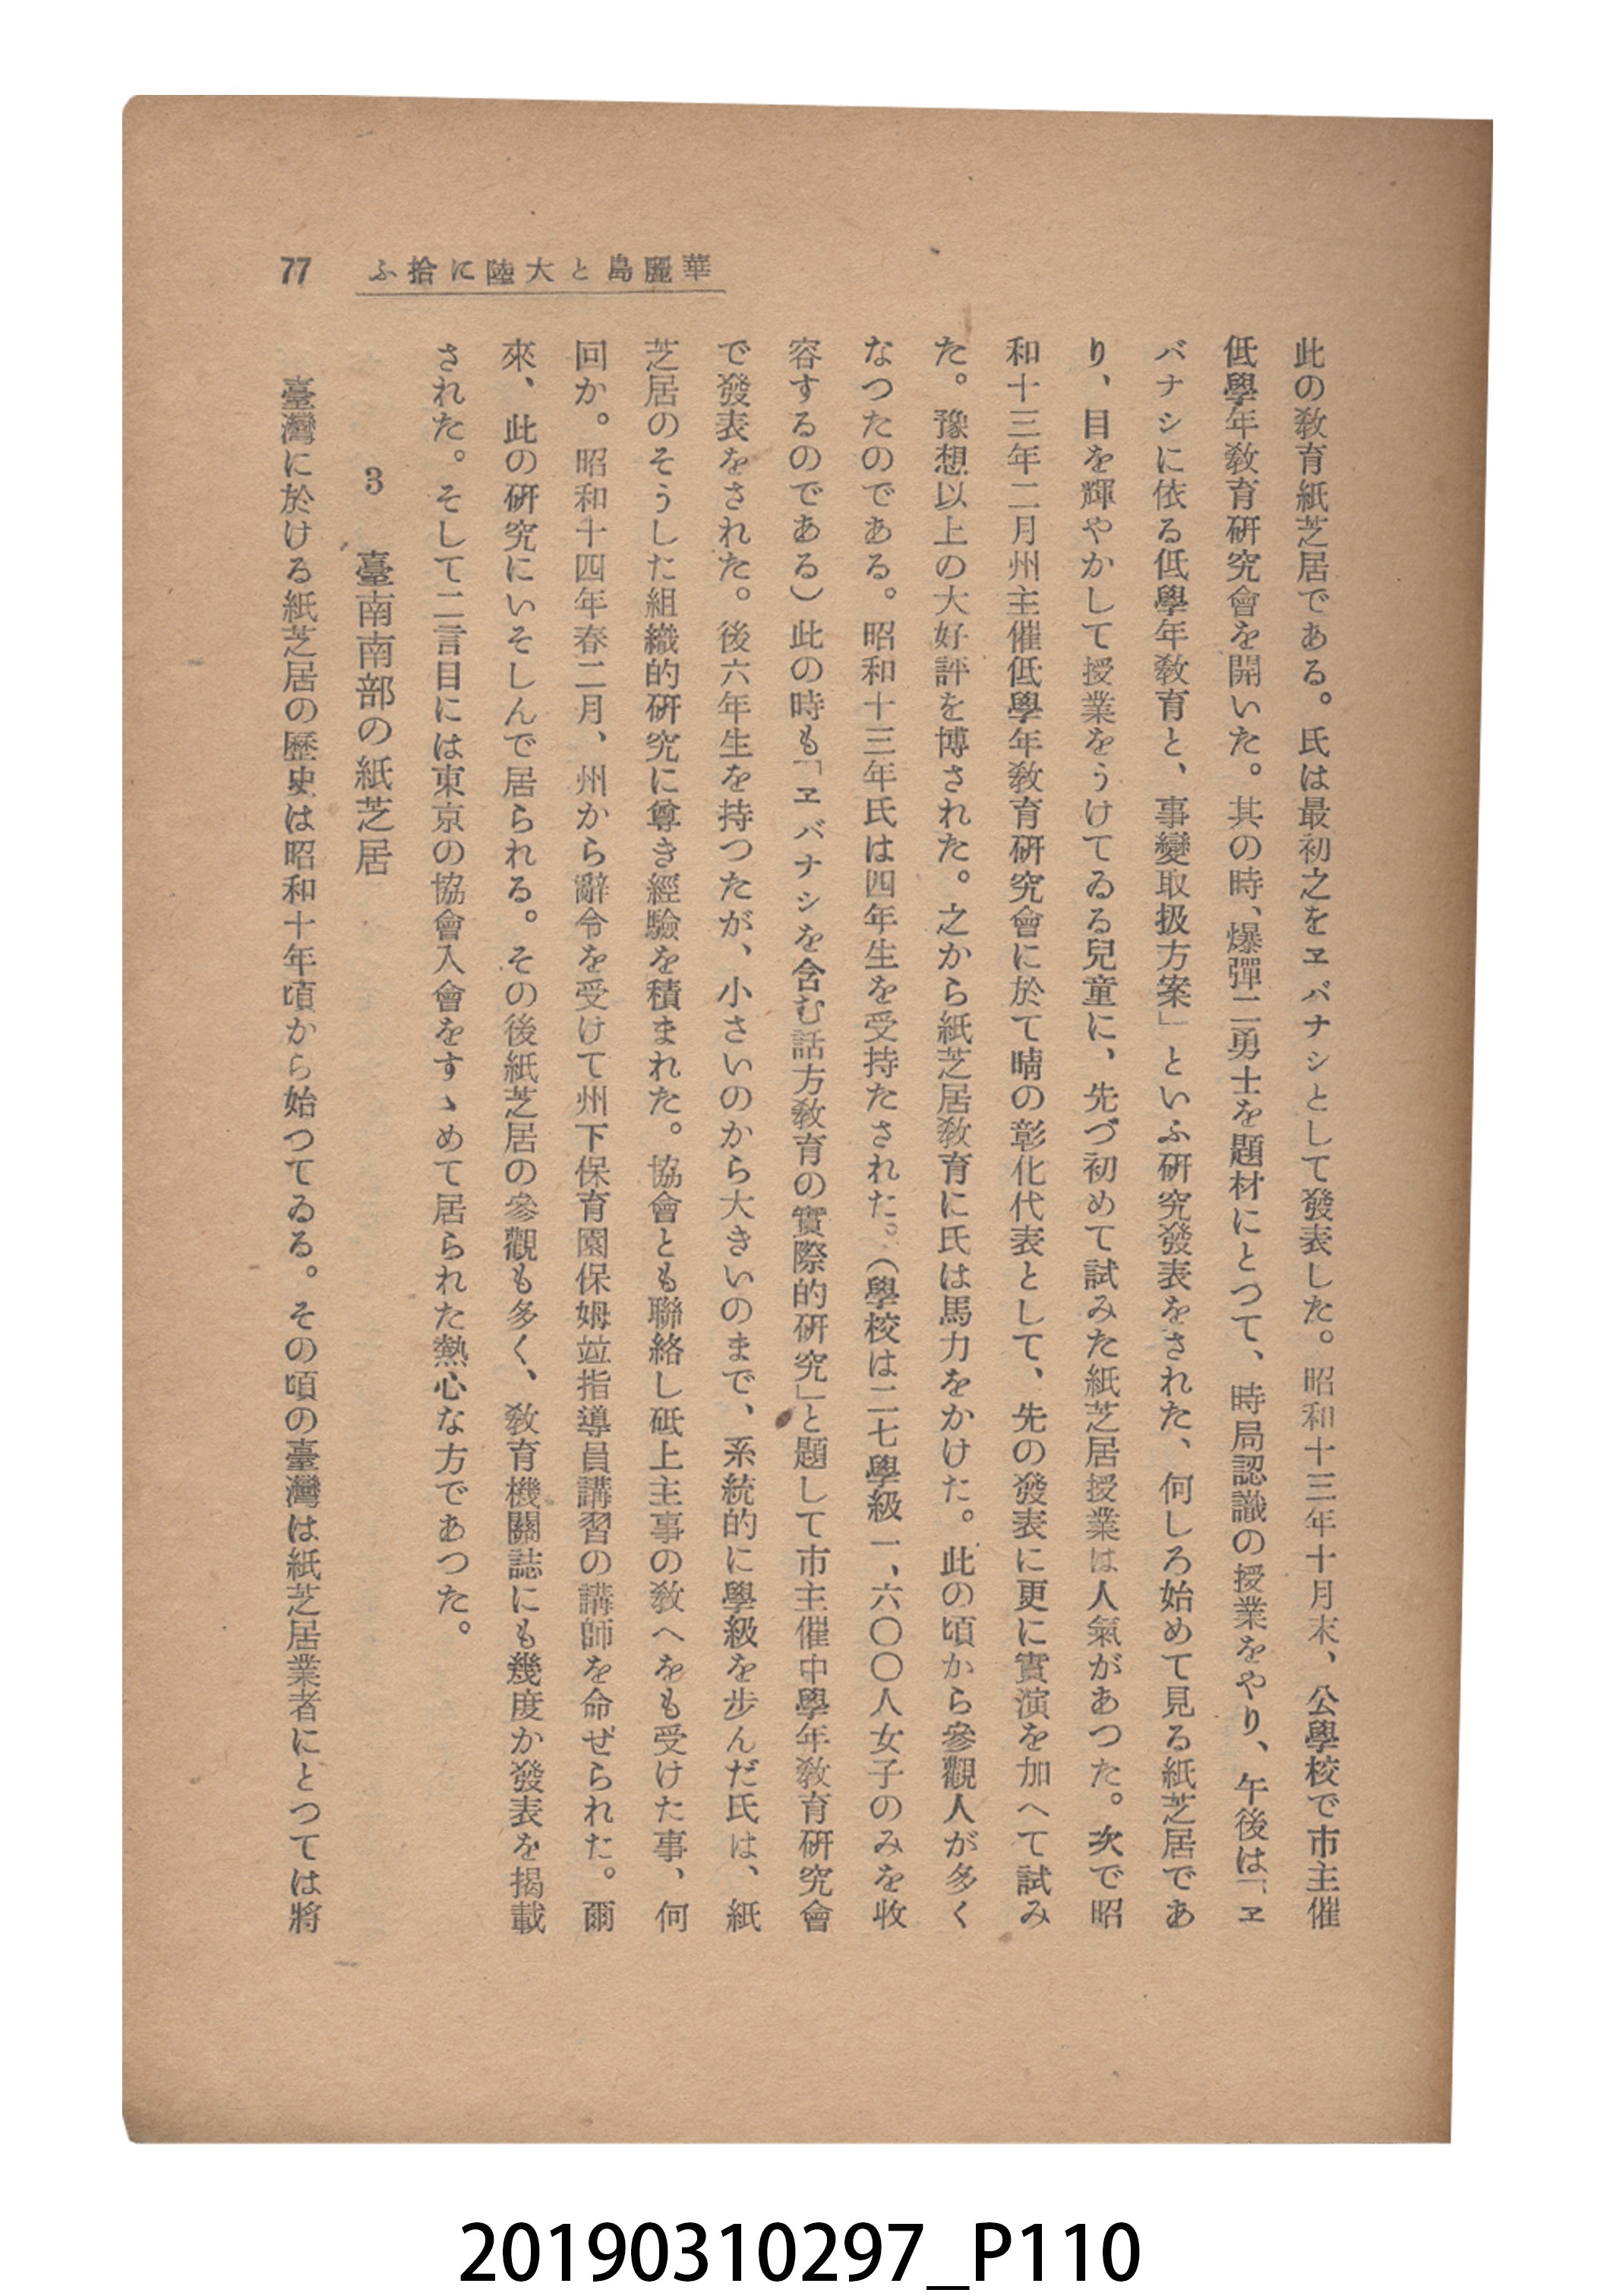 華麗島と大陸に拾ふ
77
此の敎育紙芝居である。氏は最初之をヱバナシとして發表した。昭和十三年十月末、公學校で市主催
低學年敎育硏究會を開いた。其の時、爆彈二勇士を題材にとつて、時局認識の授業をやり、午後は「ヱ
バナシに依る低學年敎育と、事變取扱方案」といふ硏究發表をされた、何しろ始めて見る紙芝居であ
り、目を輝やかして授業をうけてゐる兒童に、先づ初めて試みた紙芝居授業は人氣があつた。次で昭
和十三年二月州主催低學年敎育硏究會に於て晴の彰化代表として、先の發表に更に實演を加へて試み
た。豫想以上の大好評を博された。之から紙芝居敎育に氏は馬力をかけた。此の頃から參觀人が多く
なつたのである。昭和十三年氏は四年生を受持たされた。（學校は二七學級一、六〇〇人女子のみを收
容するのである）此の時も「ヱバナシを含む話方敎育の實際的硏究」と題して市主催中學年敎育硏究會
で發表をされた。後六年生を持つたが、小さいのから大きいのまで、系統的に學級を步んだ氏は、紙
芝居のそうした組織的硏究に尊き經驗を積まれた。協會とも聯絡し砥上主事の敎へをも受けた事、何
回か。昭和十四年春二月、州から辭令を受けて州下保育園保姆竝指導員講習の講師を命ぜられた。爾
來、此の硏究にいそしんで居られる。その後紙芝居の參觀も多く、敎育機關誌にも幾度か發表を揭載
された。そして二言目には東京の協會入會をすゝめて居られた熱心な方であつた。
3　臺南南部の紙芝居
臺灣に於ける紙芝居の歷史は昭和十年頃から始つてゐる。その頃の臺灣は紙芝居業者にとつては將
20190310297_P110